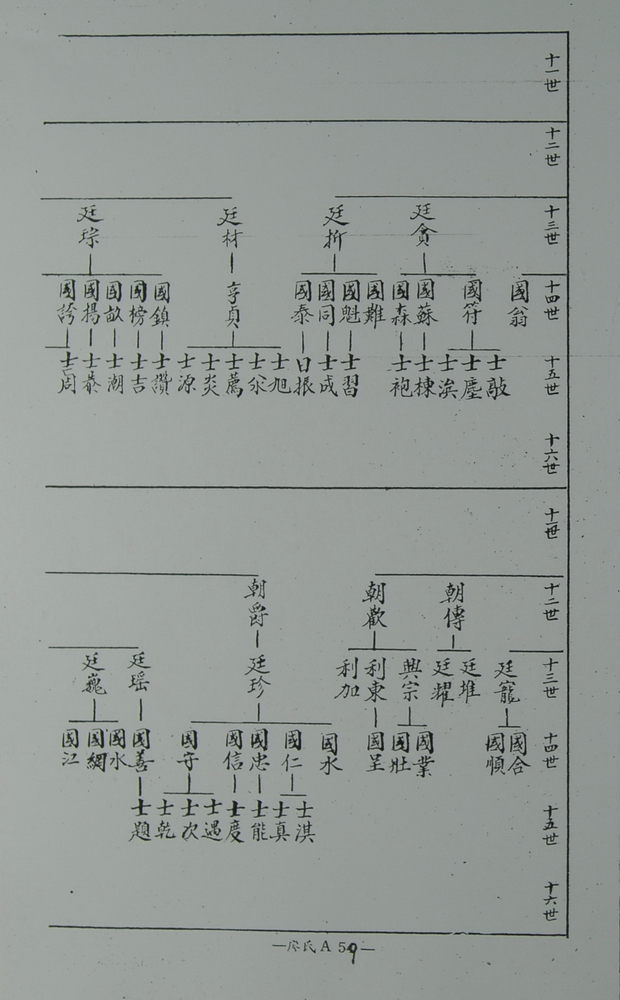 十一世
十二世
十三世
廷貪
廷折
廷材
廷琮
十四世
國翁
國符
國蘇
國森
國難
國魁
國同
國泰
亨貞
國鎮
國榜
國畝
國揚
國誇
十五世
士敲
士塵
士濱
士棟
士袍
士習
士成
日振
士旭
士炎
士源
士讚
士吉
士潮
士周
十六世
十一世
十二世
朝傳
朝歡
朝爵
十三世
廷寵
廷堆
廷耀
興宗
利東
利加
廷珍
廷瑶
廷巍
十四世
國合
國順
國業
國壯
國呈
國水
國仁
國忠
國信
國守
國善
國水
國網
國江
十五世
士淇
士真
士能
士度
士遇
士次
士乾
士題
十六世
—廖氏A 59—